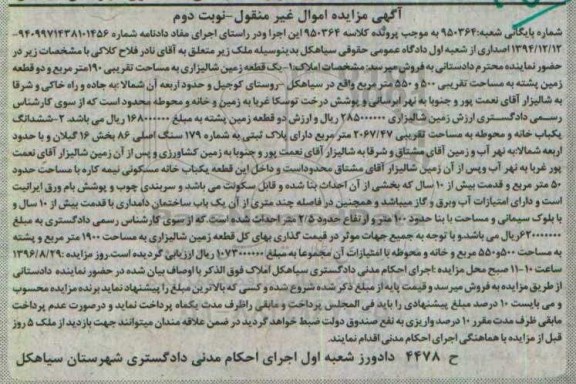 آگهی مزایده اموال غیر منقول-نوبت دوم
شماره بایگانی شعبه:۹۵۰۳۶۴ به موجب پرونده کلاسه ۹۵۰۳۶۴ این اجرا ودر راستای اجرای مفاد دادنامه شماره ۱۴۵۶-۹۴۰۹۹۷۱۴۳۸۱۰
۱۳۹۴/۱۲/۱۲ اصداری از شعبه اول دادگاه عمومی حقوقی سیاهکل بدینوسیله ملک زیر متعلق به آقای نادر فلاح کلاکی با مشخصات زیر در
حضور نماینده محترم دادستانی به فروش میرسد: مشخصات املاک:۱-یک قطعه زمین شالیزاری به مساحت تقریبی ۱۹۰ متر مربع و دو قطعه
زمین پشته به مساحت تقریبی ۵۰۰ و ۵۵۰ متر مربع واقع در سیاهکل -روستای کوجیل و حدود اربعه آن شمالا:به جاده و راه خاکی و شرقا
به شالیزار آقای نعمت پور و جنوبا به نهر آبرسانی و پوشش درخت توسکا غربا به زمین و خانه و محوطه محدود است که از سوی کارشناس
رسمی دادگستری ارزش زمین شالیزاری ۲۸۵۰۰۰۰۰۰ ریال و ارزش دو قطعه زمین پشته به مبلغ ۱۶۸۰۰۰۰۰۰ ریال می باشد ۲-ششدانگ
یکباب خانه و محوطه به مساحت تقریبی ۲۰۶۷/۴۷ متر مربع دارای پلاک ثبتی به شماره ۱۷۹ سنگ اصلی ۸۶ بخش ۱۶ گیلان و با حدود
اربعه شمالا:به نهر آب و زمین آقای مشتاق و شرقا به شالیزار آقای نعمت پور و جنوبا به زمین کشاورزی و پس از آن زمین شالیزار آقای نعمت
پور غربا به نهر آب وپس از آن زمین شالیزار آقای مشتاق محدوداست و داخل این قطعه یکباب خانه مسکونی نیمه کاره با مساحت حدود
۵۰ متر مربع و قدمت بیش از ۱۰ سال که بخشی از آن احداث بنا شده و قابل سکونت می باشد و سربندی چوب و پوشش بام ورق ایرانیت
است و دارای امتیازات آب وبرق و گاز میباشد و همچنین در فاصله چند متری از آن یک باب ساختمان دامداری با قدمت بیش از ۱۰ سال و
با بلوک سیمانی و مساحت با بنا حدود ۱۰۰ متر و ارتفاع حدود ۲/۵ متر احداث شده است که از سوی کارشناس رسمی دادگستری به مبلغ
۶۲۰۰۰۰۰۰۰ریال می باشد.و با توجه به جمیع جهات موثر در قیمت گذاری بهای کل قطعه زمین شالیزاری به مساحت ۱۹۰۰ متر مربع و پشته
به مساحت ۵۰۰و۵۵۰ متر مربع و خانه و محوطه با امتیازات آن مجموعا به مبلغ ۱۰۷۳۰۰۰۰۰۰ ریال ارزیابی گردیده است.روز مزایده :۱۳۹۶/۸/۲۹
ساعت ۱۰-۱۱ صبح محل مزایده :اجرای احکام مدنی دادگستری سیاهکل املاک فوق الذکر با اوصاف بیان شده در حضور نماینده دادستانی
از طریق مزایده به فروش میرسد و قیمت پایه از مبلغ ذکر شده شروع شده و کسی که بالاترین مبلغ را پیشنهاد نماید برنده مزایده محسوب
و می بایست ۱۰ درصد مبلغ پیشنهادی را باید فی المجلس پرداخت و مابقی راظرف مدت یکماه پرداخت نماید و درصورت عدم پرداخت
مابقی ظرف مدت مقرر ۱۰ درصد واریزی به نفع صندوق دولت ضبط خواهد گردید در ضمن علاقه مندان میتوانند جهت بازدید از ملک ۵ روز
قبل از مزایده با هماهنگی اجرای احکام مدنی اقدام نمایند.
ح ۴۴۷۸ دادورز شعبه اول اجرای احکام مدنی دادگستری شهرستان سیاهکل